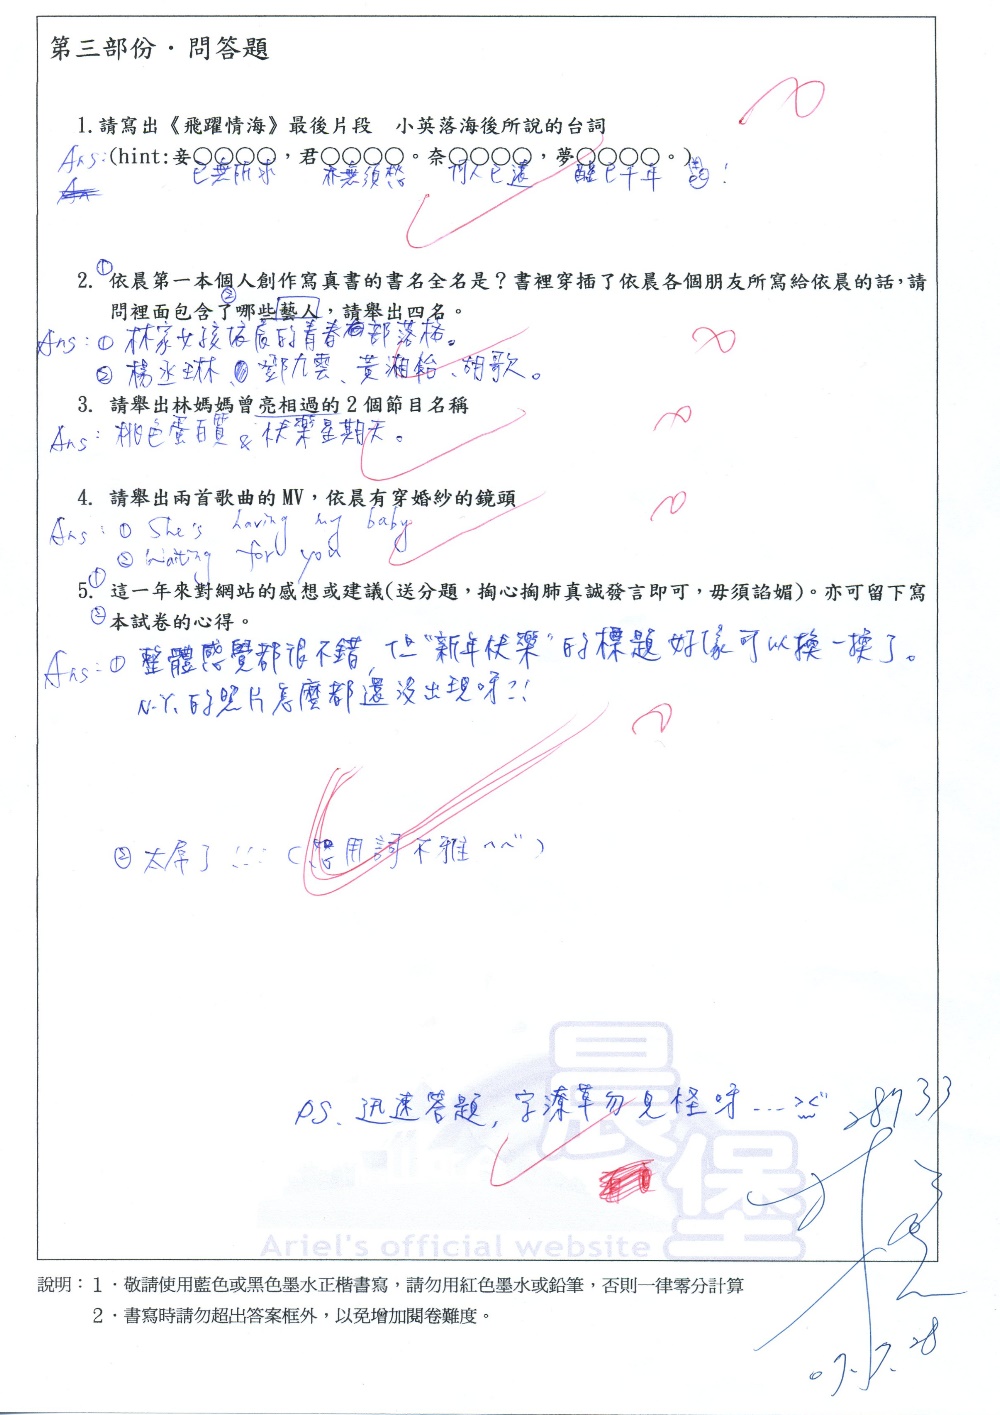 第三部份·問答題
1.請寫出《飛躍情海》最後片段　小英落海後所說的台詞
Ans:(hint:妾○○○○，君○○○○。奈○○○○，夢○○○○。)
已無所求　亦無須愁　何人已遠　醒已千年
2. ①依晨第一本個人創作寫真書的書名全名是？書裡穿插了依晨各個朋友所寫給依晨的話，請
②問裡面包含了哪些藝人，請舉出四名。
Ans: ① 林家女孩依晨的青春部落格。
② 楊丞琳、鄧九雲、黃湘怡、胡歌。
3. 請舉出林媽媽曾亮相過的2個節目名稱
Ans: 桃色蛋白質 & 快樂星期天。
4. 請舉出兩首歌曲的MV，依晨有穿婚紗的鏡頭
Ans: ① She's having my baby
② waiting for you
5. ①這一年來對網站的感想或建議(送分題，掏心掏肺真誠發言即可，毋須諂媚)。亦可留下寫
②本試卷的心得。
Ans: ① 整體感覺都很不錯，但"新年快樂"的標題好像可以換一換了。
N.Y.的照片怎麼都還沒出現呀?!
② 太屌了!!! (用詞不雅^^")
PS. 迅速答題，字潦草勿見怪呀...><"
28733
晨堡
Ariel's official website
07.7.28
說明：1·敬請使用藍色或黑色墨水正楷書寫，請勿用紅色墨水或鉛筆，否則一律零分計算
2·書寫時請勿超出答案框外，以免增加閱卷難度。